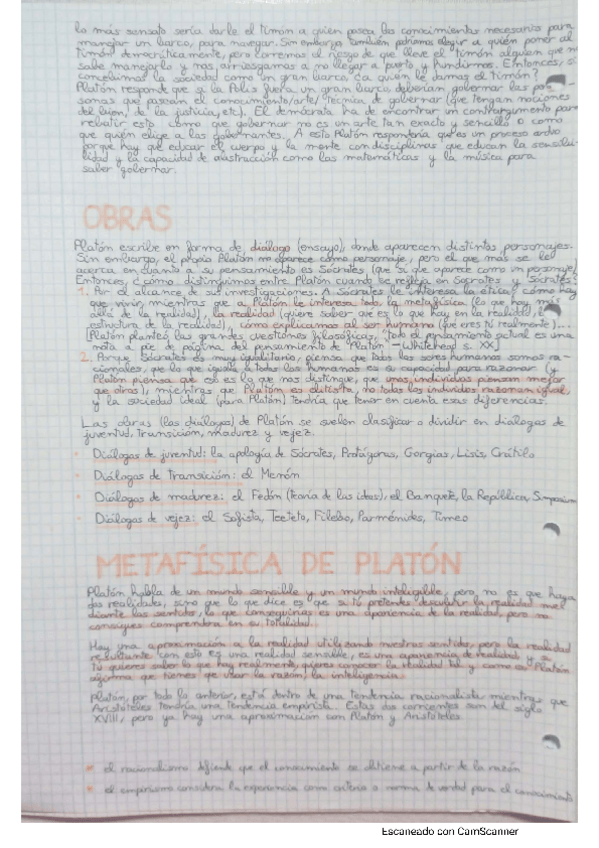 lo más sensato sería darle el timón a quien posea los conocimientos necesarios para
manejar un barco, para navegar. Sin embargo también podríamos elegir a quién poner al
timón democráticamente, pero corremos el riesgo de que lleve el timón alguien que no
sabe manejarlo y nos arriesgamos a no llegar a puerto y hundirnos. Entonces, si
concebimos la sociedad como un gran barco ¿a quién le damos el timón?
Platón responde que si la Polis fuera un gran barco deberían gobernar las per-
sonas que posean el conocimiento/arte/técnica de gobernar (que tengan nociones
del bien, de la justicia, etc). El demócrata ha de encontrar un contraargumento para
rebatir esto como que gobernar no es un arte tan exacto y sencillo o como
que quién elige a los gobernantes. A esto Platón respondería que es un proceso arduo
porque hay que educar el cuerpo y la mente con disciplinas que educan la sensibi-
lidad y la capacidad de abstracción como las matemáticas y la música para
saber gobernar.
OBRAS
Platón escribe en forma de diálogo (ensayo), donde aparecen distintos personajes.
Sin embargo, el propio Platón no aparece como personaje, pero el que más se le
acerca en cuanto a su pensamiento es Sócrates (que sí que aparece como un personaje)
Entonces, ¿cómo distinguimos entre Platón cuando se refleja en Sócrates y Sócrates?
1. Por el alcance de sus investigaciones. A Sócrates le interesa la ética, cómo hay
que vivir, mientras que a Platón le interesa todo, la metafísica (lo que hay más
allá de la realidad), la realidad (quiere saber qué es lo que hay en la realidad, la
estructura de la realidad), cómo explicamos al ser humano (qué eres tú realmente)...
[Platón planteó las grandes cuestiones filosóficas, "todo el pensamiento actual es una
nota a pie de página del pensamiento de Platón" - Whitehead s. XX]
2. Porque Sócrates es muy igualitario, piensa que todos los seres humanos somos ra-
cionales, que lo que iguala a todos los humanos es su capacidad para razonar (y
Platón piensa que eso es lo que nos distingue, que unos individuos piensan mejor
que otros), mientras que Platón es elitista, no todos los individuos razonan igual,
y la sociedad ideal (para Platón) tendría que tener en cuenta esas diferencias.
Las obras (los diálogos) de Platón se suelen clasificar o dividir en diálogos de
juventud, transición, madurez y vejez.
• Diálogos de juventud: la apología de Sócrates, Protágoras, Gorgias, Lisis, Crátilo
• Diálogos de transición: el Menón
• Diálogos de madurez: el Fedón (teoría de las ideas), el Banquete, la República, Symposium
• Diálogos de vejez: el Sofista, Teeteto, Filebo, Parménides, Timeo
METAFÍSICA DE PLATÓN
Platón habla de un mundo sensible y un mundo inteligible, pero, no es que haya
dos realidades, sino que lo que dice es que si tú pretendes descubrir la realidad med
diante los sentidos, lo que conseguirías es una apariencia de la realidad, pero no
consigues comprenderla en su totalidad.
Hay una aproximación a la realidad utilizando nuestros sentidos, pero la realidad
resultante con esto es una realidad sensible, es una apariencia de realidad y si
tú quieres saber lo que hay realmente, quieres conocer la realidad tal y como es Platón
afirma que tienes que usar la razón, la inteligencia.
Platón, por todo lo anterior, está dentro de una tendencia racionalista mientras que
Aristóteles tendría una tendencia empirista. Estas dos corrientes son del siglo
XVIII, pero ya hay una aproximación con Platón y Aristóteles
• el racionalismo defiende que el conocimiento se obtiene a partir de la razón
• el empirismo considera la experiencia como criterio o norma de verdad para el conocimiento
Escaneado con CamScanner